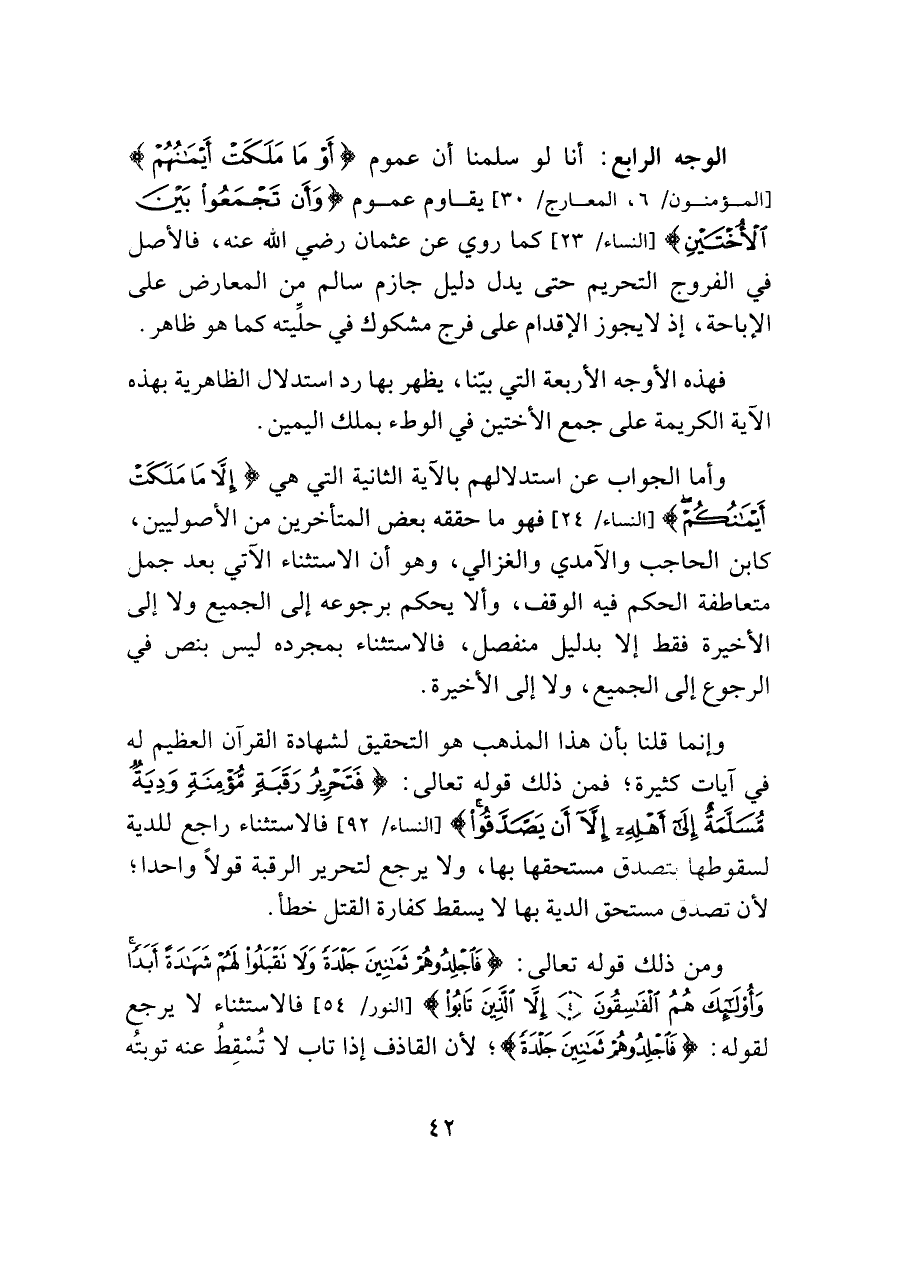 الوجه الرابع: أنا لو سلمنا أن عموم ﴿أَوْ مَا مَلَكَتْ أَيْمَٰنُهُمْ﴾
[المـؤمنـون/ ٦، المعـارج/ ٣٠] يقـاوم عمـوم ﴿وَأَن تَجْمَعُوا۟ بَيْنَ
ٱلْأُخْتَيْنِ﴾ [النساء/ ٢٣] كما روي عن عثمان رضي الله عنه، فالأصل
في الفروج التحريم حتى يدل دليل جازم سالم من المعارض على
الإباحة، إذ لايجوز الإقدام على فرج مشكوك في حلِّيته كما هو ظاهر.
فهذه الأوجه الأربعة التي بيّنا، يظهر بها رد استدلال الظاهرية بهذه
الآية الكريمة على جمع الأختين في الوطء بملك اليمين.
وأما الجواب عن استدلالهم بالآية الثانية التي هي ﴿إِلَّا مَا مَلَكَتْ
أَيْمَٰنُكُمْۖ﴾ [النساء/ ٢٤] فهو ما حققه بعض المتأخرين من الأصوليين،
كابن الحاجب والآمدي والغزالي، وهو أن الاستثناء الآتي بعد جمل
متعاطفة الحكم فيه الوقف، وألا يحكم برجوعه إلى الجميع ولا إلى
الأخيرة فقط إلا بدليل منفصل، فالاستثناء بمجرده ليس بنص في
الرجوع إلى الجميع، ولا إلى الأخيرة.
وإنما قلنا بأن هذا المذهب هو التحقيق لشهادة القرآن العظيم له
في آيات كثيرة؛ فمن ذلك قوله تعالى: ﴿فَتَحْرِيرُ رَقَبَةٍ مُّؤْمِنَةٍ وَدِيَةٌ
مُّسَلَّمَةٌ إِلَىٰٓ أَهْلِهِۦٓ إِلَّآ أَن يَصَّدَّقُوا۟ۚ﴾ [النساء/ ٩٢] فالاستثناء راجع للدية
لسقوطها بتصدق مستحقها بها، ولا يرجع لتحرير الرقبة قولاً واحدا؛
لأن تصدق مستحق الدية بها لا يسقط كفارة القتل خطأ.
ومن ذلك قوله تعالى: ﴿فَٱجْلِدُوهُمْ ثَمَٰنِينَ جَلْدَةً وَلَا تَقْبَلُوا۟ لَهُمْ شَهَٰدَةً أَبَدًاۚ
وَأُو۟لَٰٓئِكَ هُمُ ٱلْفَٰسِقُونَ ٤ إِلَّا ٱلَّذِينَ تَابُوا۟﴾ [النور/ ٥٤] فالاستثناء لا يرجع
لقوله: ﴿فَٱجْلِدُوهُمْ ثَمَٰنِينَ جَلْدَةً﴾؛ لأن القاذف إذا تاب لا تُسْقِطُ عنه توبتُه
٤٢